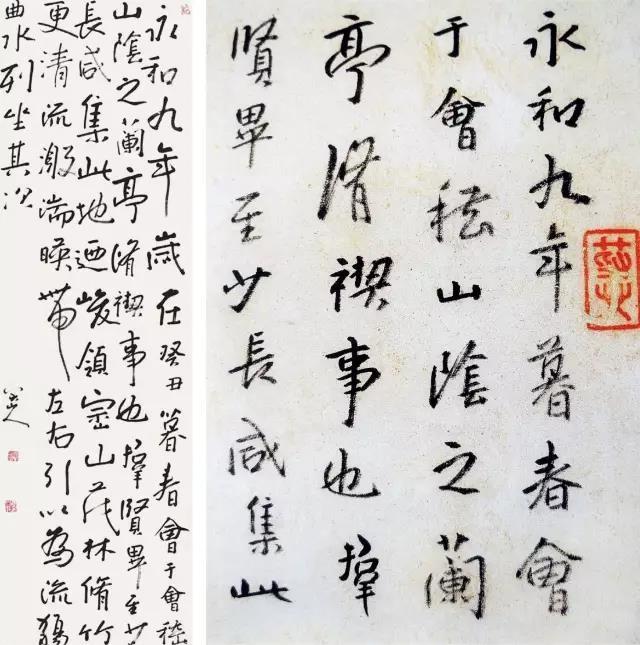 永和九年暮春會
于會嵇山陰之蘭
亭脩禊事也群
賢畢至少長咸集此
永和九年歲在癸丑暮春會于會嵇
山陰之蘭亭脩禊事也群賢畢至少
長咸集此地迺峻領崇山茂林脩竹
更清流激湍暎帶左右引以為流觴
曲水列坐其次
八大山人